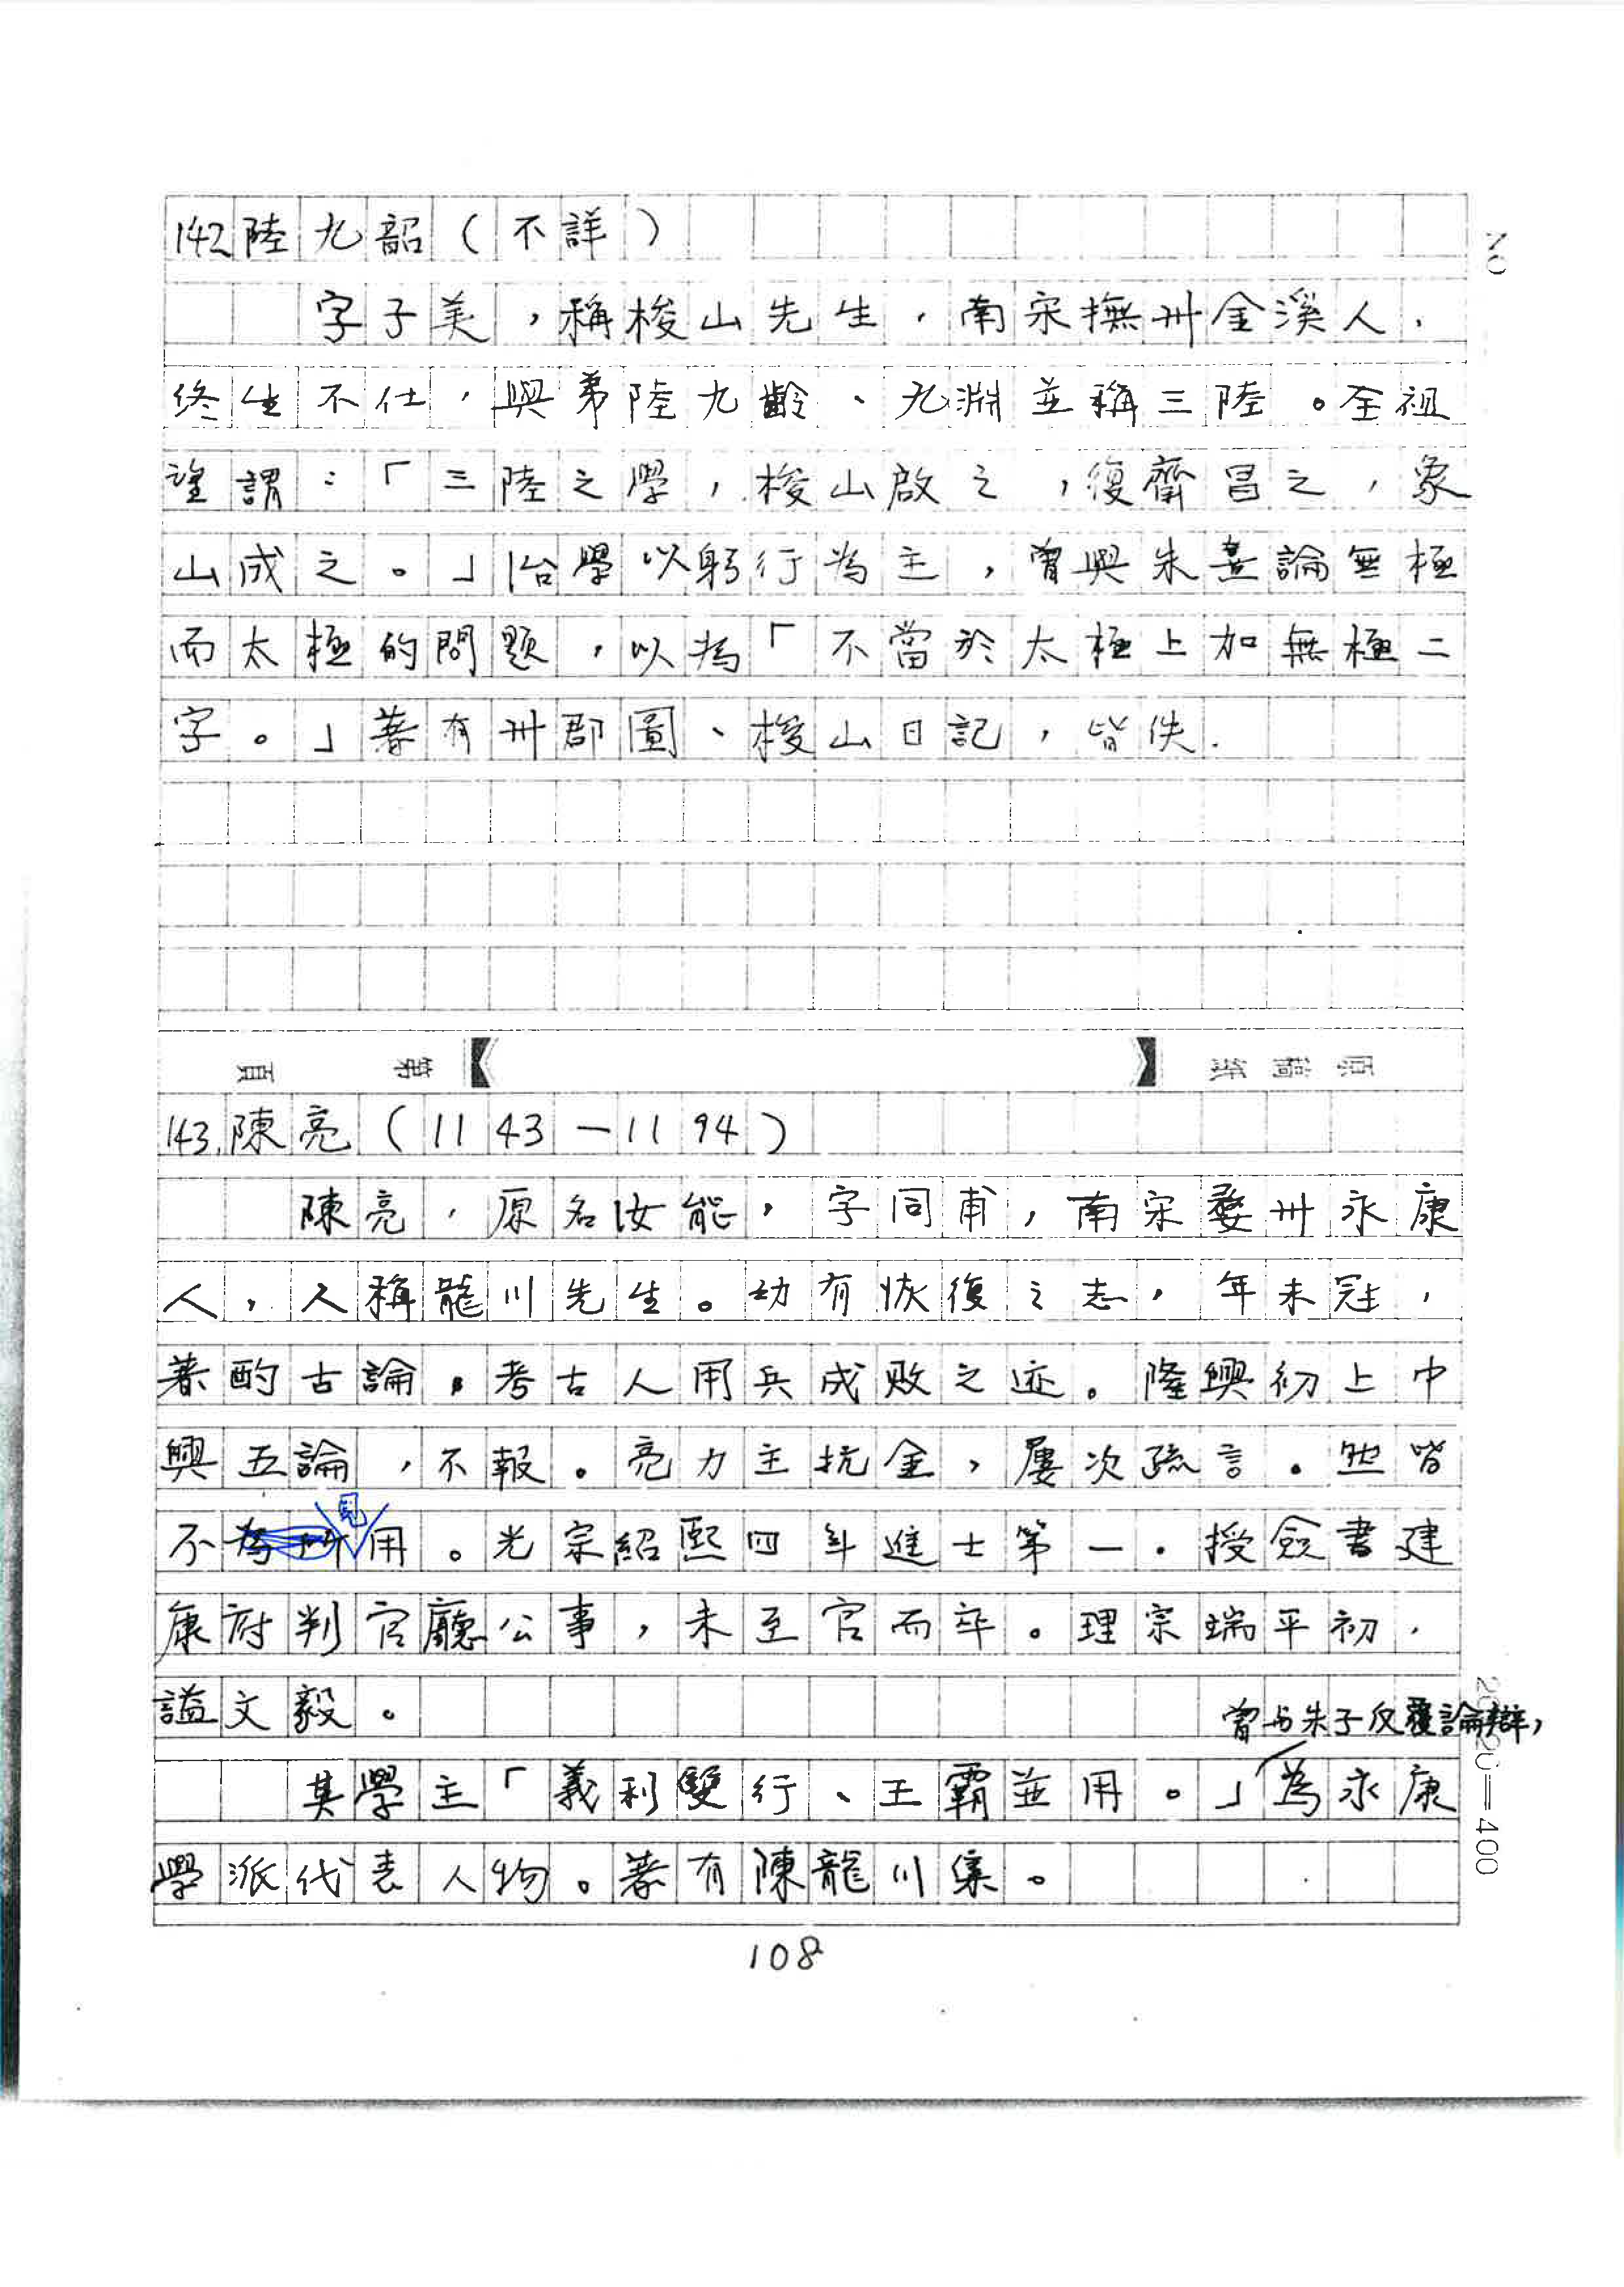 142陸九韶(不詳)
No
字子美,稱梭山先生,南宋撫州金溪人,
終生不仕,與弟陸九齡、九淵並稱三陸。全祖
望謂:「三陸之學,梭山啟之,復齋昌之,象
山成之。」治學以躬行為主,曾與朱熹論無極
而太極的問題,以為「不當於太極上加無極二
字。」著有州郡圖、梭山日記,皆佚.
頁 第 原稿紙
143.陳亮(1143—1194)
陳亮,原名汝能,字同甫,南宋婺州永康
人,人稱龍川先生。幼有恢復之志,年未冠,
著酌古論。考古人用兵成敗之迹。隆興初上中
興五論,不報。亮力主抗金,屢次疏言。然皆
不見用。光宗紹熙四年進士第一.授僉書建
康府判官廳公事,未至官而卒。理宗端平初,
謚文毅。
曾与朱子反覆論辯,
其學主「義利雙行、王霸並用。」為永康
學派代表人物。著有陳龍川集。
20×20=400
108